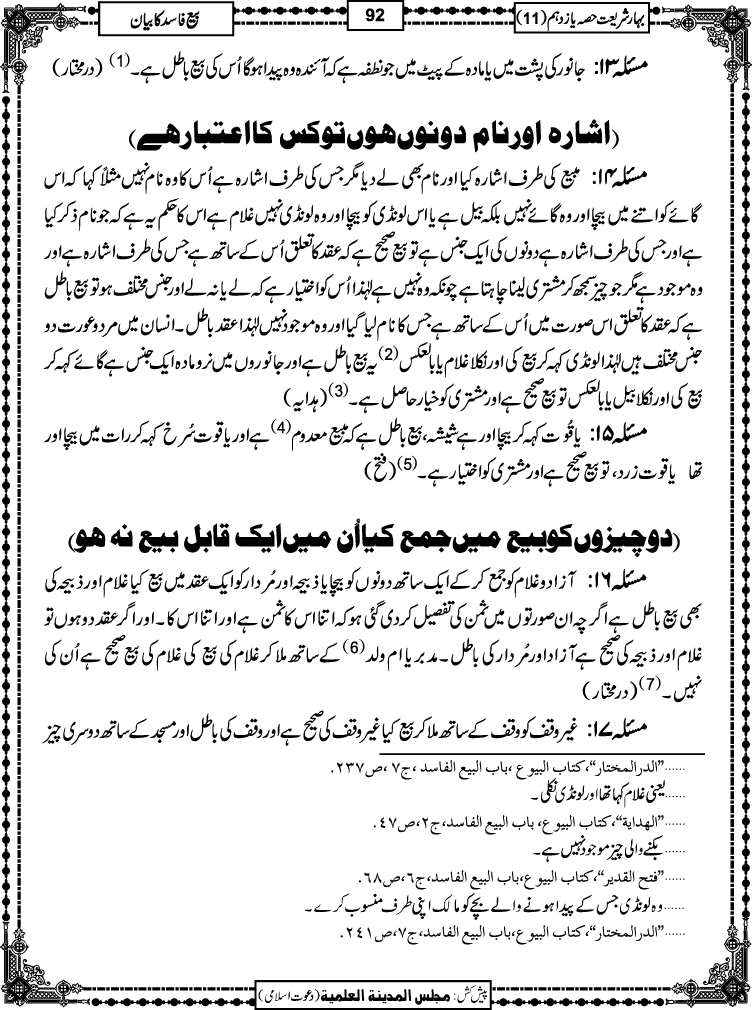 بہار شریعت حصہ یازدہم (11)
92
بیع فاسد کا بیان
مسئلہ ۱۳: جانور کی پشت میں یا مادہ کے پیٹ میں جو نطفہ ہے کہ آئندہ وہ پیدا ہوگا اُس کی بیع باطل ہے۔(1) (درمختار)
(اشارہ اور نام دونوں ہوں تو کس کا اعتبار ہے)
مسئلہ ۱۴: مبیع کی طرف اشارہ کیا اور نام بھی لے دیا مگر جس کی طرف اشارہ ہے اُس کا وہ نام نہیں مثلاً کہا کہ اس
گائے کو اتنے میں بیچا اور وہ گائے نہیں بلکہ بیل ہے یا اس لونڈی کو بیچا اور وہ لونڈی نہیں غلام ہے اس کا حکم یہ ہے کہ جو نام ذکر کیا
ہے اور جس کی طرف اشارہ ہے دونوں کی ایک جنس ہے تو بیع صحیح ہے کہ عقد کا تعلق اُس کے ساتھ ہے جس کی طرف اشارہ ہے اور
وہ موجود ہے مگر جو چیز سمجھ کر مشتری لینا چاہتا ہے چونکہ وہ نہیں ہے لہٰذا اُس کو اختیار ہے کہ لے یا نہ لے اور جنس مختلف ہو تو بیع باطل
ہے کہ عقد کا تعلق اس صورت میں اُس کے ساتھ ہے جس کا نام لیا گیا اور وہ موجود نہیں لہٰذا عقد باطل۔ انسان میں مرد و عورت دو
جنس مختلف ہیں لہٰذا لونڈی کہہ کر بیع کی اور نکلا غلام یا بالعکس(2) یہ بیع باطل ہے اور جانوروں میں نر و مادہ ایک جنس ہے گائے کہہ کر
بیع کی اور نکلا بیل یا بالعکس تو بیع صحیح ہے اور مشتری کو خیار حاصل ہے۔(3) (ہدایہ)
مسئلہ ۱۵: یاقُوت کہہ کر بیچا اور ہے شیشہ، بیع باطل ہے کہ مبیع معدوم(4) ہے اور یاقوت سُرخ کہہ کر رات میں بیچا اور
تھا یاقوت زرد، تو بیع صحیح ہے اور مشتری کو اختیار ہے۔(5) (فتح)
(دو چیزوں کو بیع میں جمع کیا اُن میں ایک قابل بیع نہ ہو)
مسئلہ ۱۶: آزاد و غلام کو جمع کر کے ایک ساتھ دونوں کو بیچا یا ذبیحہ اور مُردار کو ایک عقد میں بیع کیا غلام اور ذبیحہ کی
بھی بیع باطل ہے اگرچہ ان صورتوں میں ثمن کی تفصیل کر دی گئی ہو کہ اتنا اس کا ثمن ہے اور اتنا اس کا۔ اور اگر عقد دو ہوں تو
غلام اور ذبیحہ کی صحیح ہے آزاد اور مُردار کی باطل۔ مدبر یا ام ولد(6) کے ساتھ ملا کر غلام کی بیع کی غلام کی بیع صحیح ہے اُن کی
نہیں۔(7) (درمختار)
مسئلہ ۱۷: غیر وقف کو وقف کے ساتھ ملا کر بیع کیا غیر وقف کی صحیح ہے اور وقف کی باطل اور مسجد کے ساتھ دوسری چیز
......"الدرالمختار"، کتاب البیوع، باب البیع الفاسد، ج۷، ص۲۳۷.
......یعنی غلام کہا تھا اور لونڈی نکلی۔
......"الھدایة"، کتاب البیوع، باب البیع الفاسد، ج۲، ص۴۷.
......بکنے والی چیز موجود نہیں ہے۔
......"فتح القدیر"، کتاب البیوع، باب البیع الفاسد، ج۶، ص۶۸.
......وہ لونڈی جس کے پیدا ہونے والے بچے کو مالک اپنی طرف منسوب کرے۔
......"الدرالمختار"، کتاب البیوع، باب البیع الفاسد، ج۷، ص۲۴۱.
پیش کش: مجلس المدینة العلمیة (دعوت اسلامی)